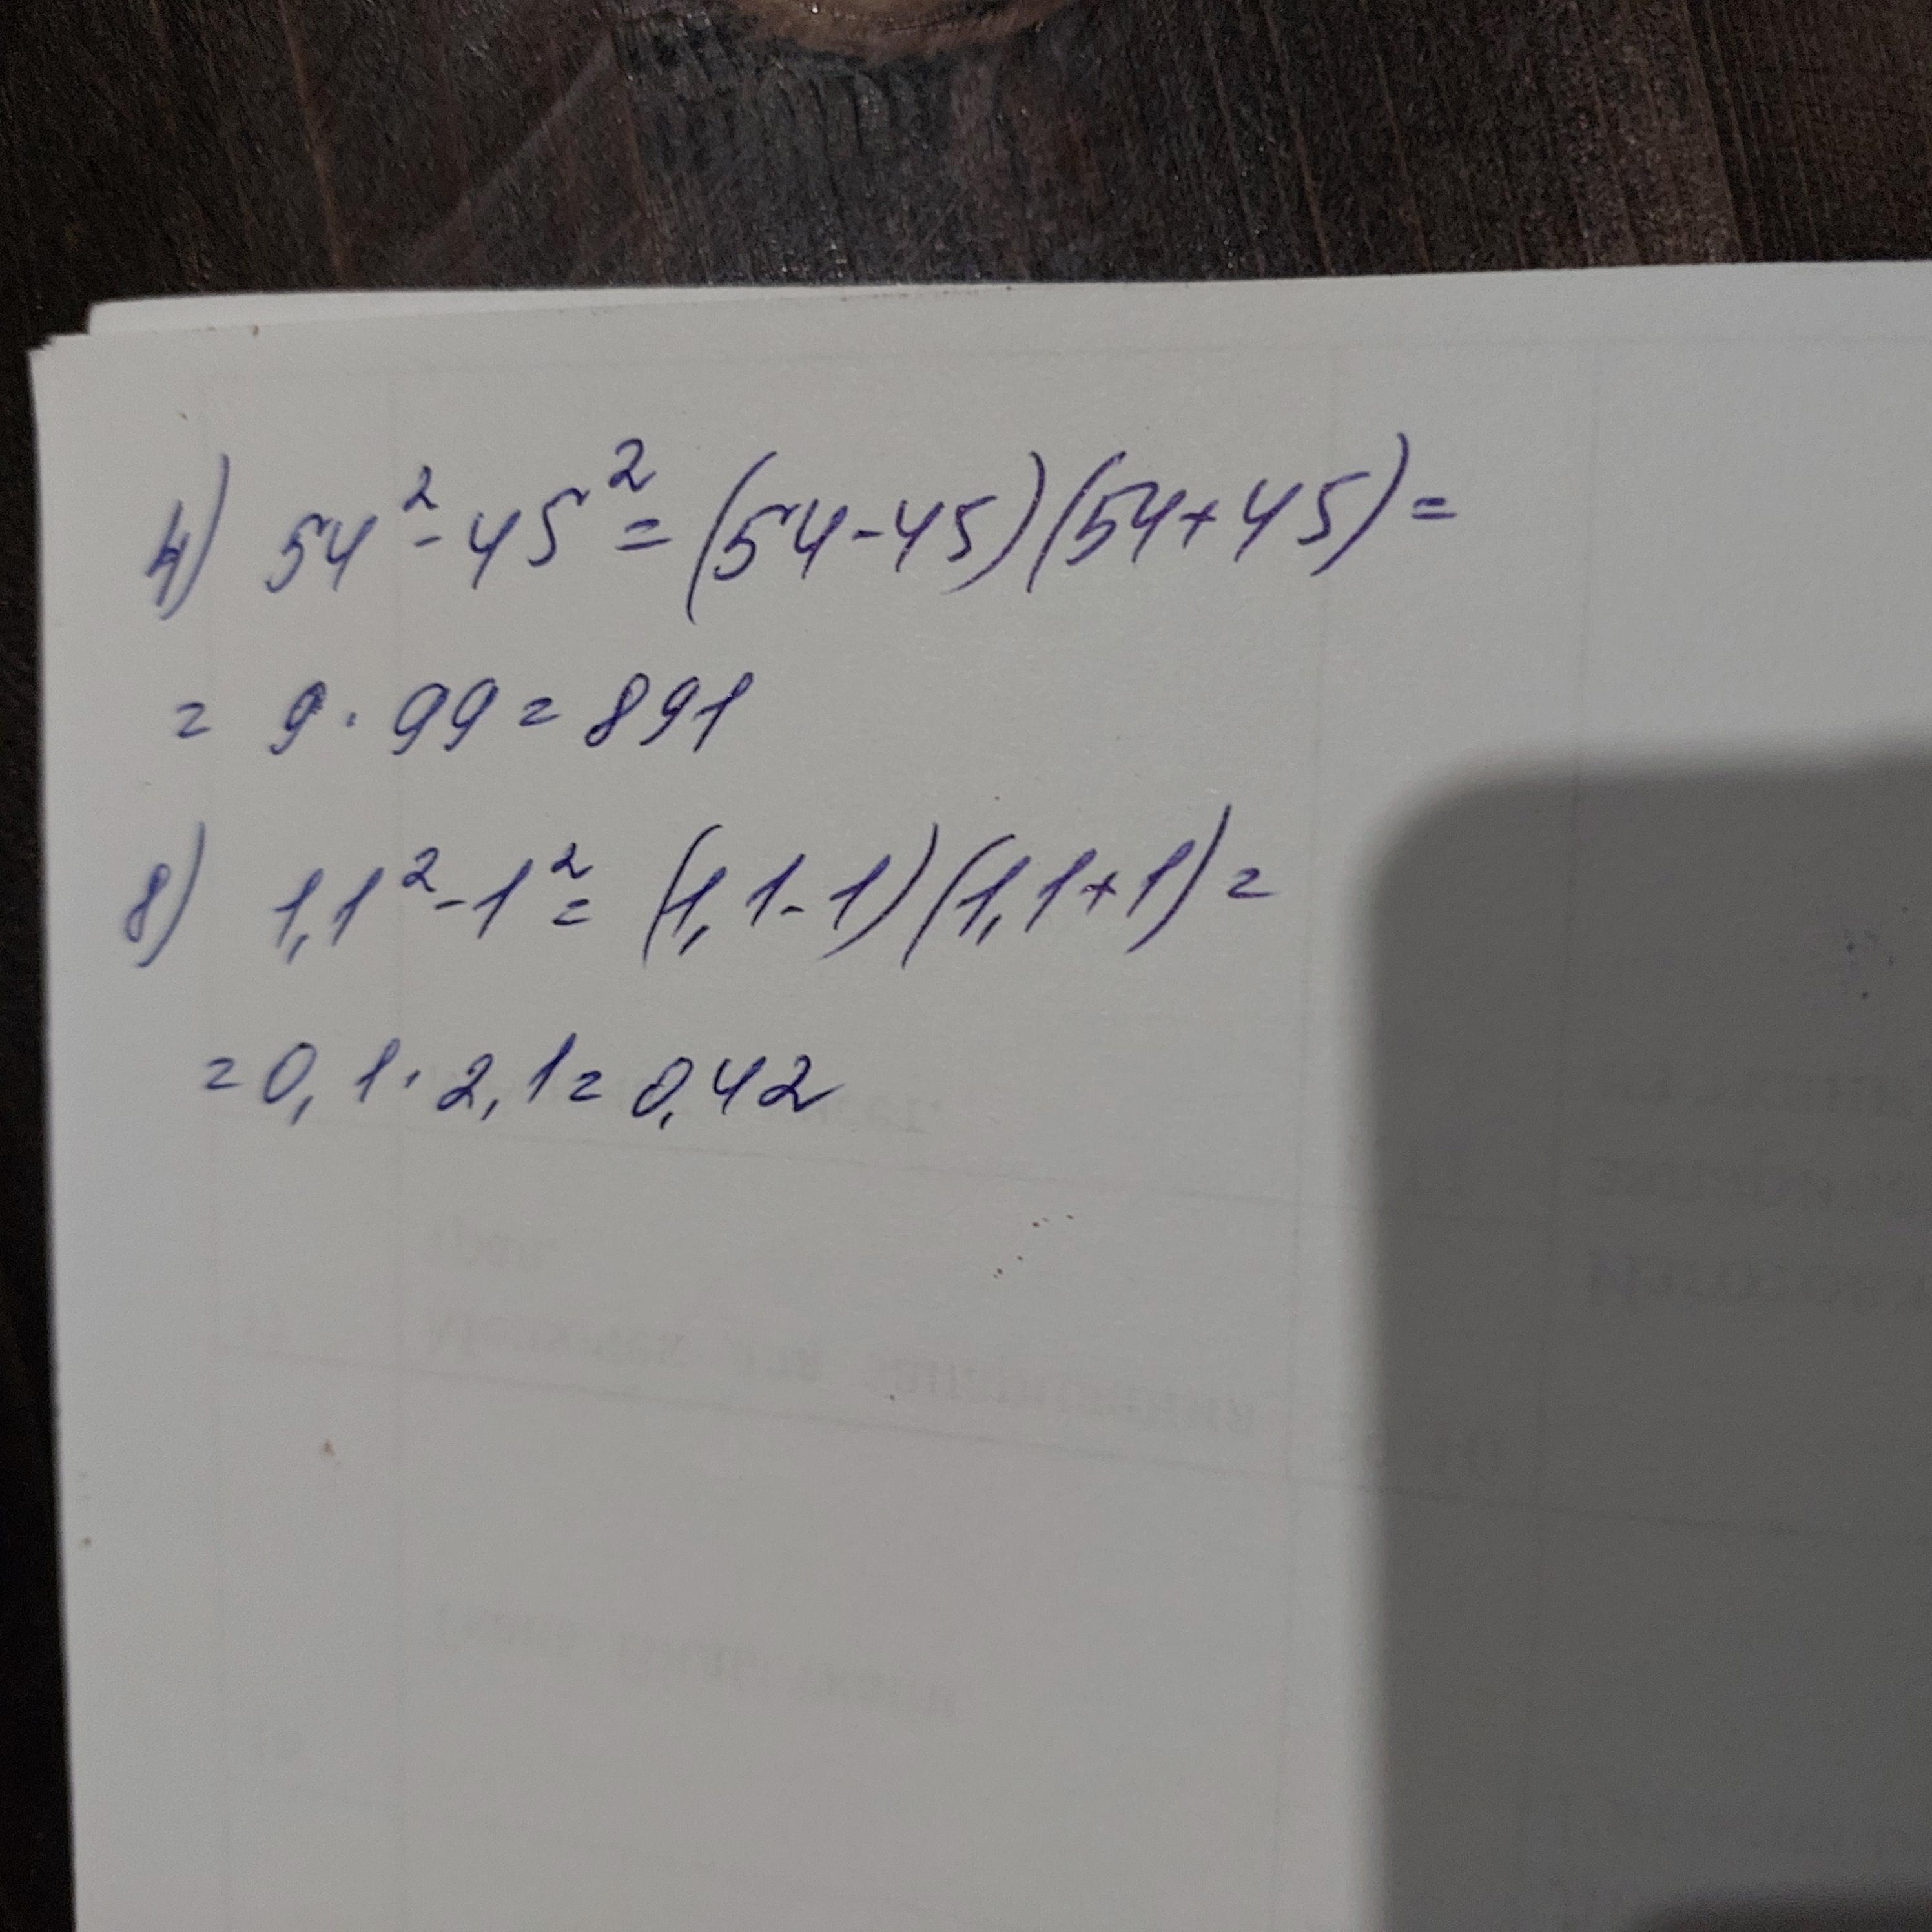 4) 54² - 45² = (54-45)(54+45) =
= 9 · 99 = 891
8) 1,1² - 1² = (1,1-1)(1,1+1) =
= 0,1 · 2,1 = 0,42